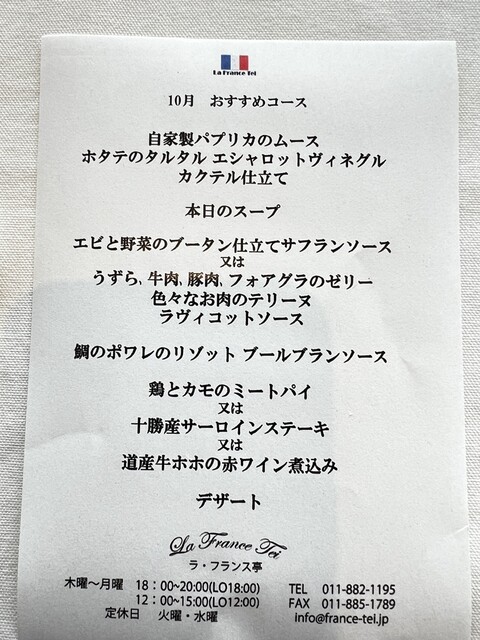 La France Tei
10月 おすすめコース
自家製パプリカのムース
ホタテのタルタル エシャロットヴィネグル
カクテル仕立て
本日のスープ
エビと野菜のブータン仕立てサフランソース
又は
うずら､牛肉､豚肉､フォアグラのゼリー
色々なお肉のテリーヌ
ラヴィコットソース
鯛のポワレのリゾット ブールブランソース
鶏とカモのミートパイ
又は
十勝産サーロインステーキ
又は
道産牛ホホの赤ワイン煮込み
デザート
La France Tei
ラ・フランス亭
木曜～月曜 18：00~20:00(LO18:00) TEL 011-882-1195
12：00~15:00(LO12:00) FAX 011-885-1789
定休日 火曜・水曜 info@france-tei.jp